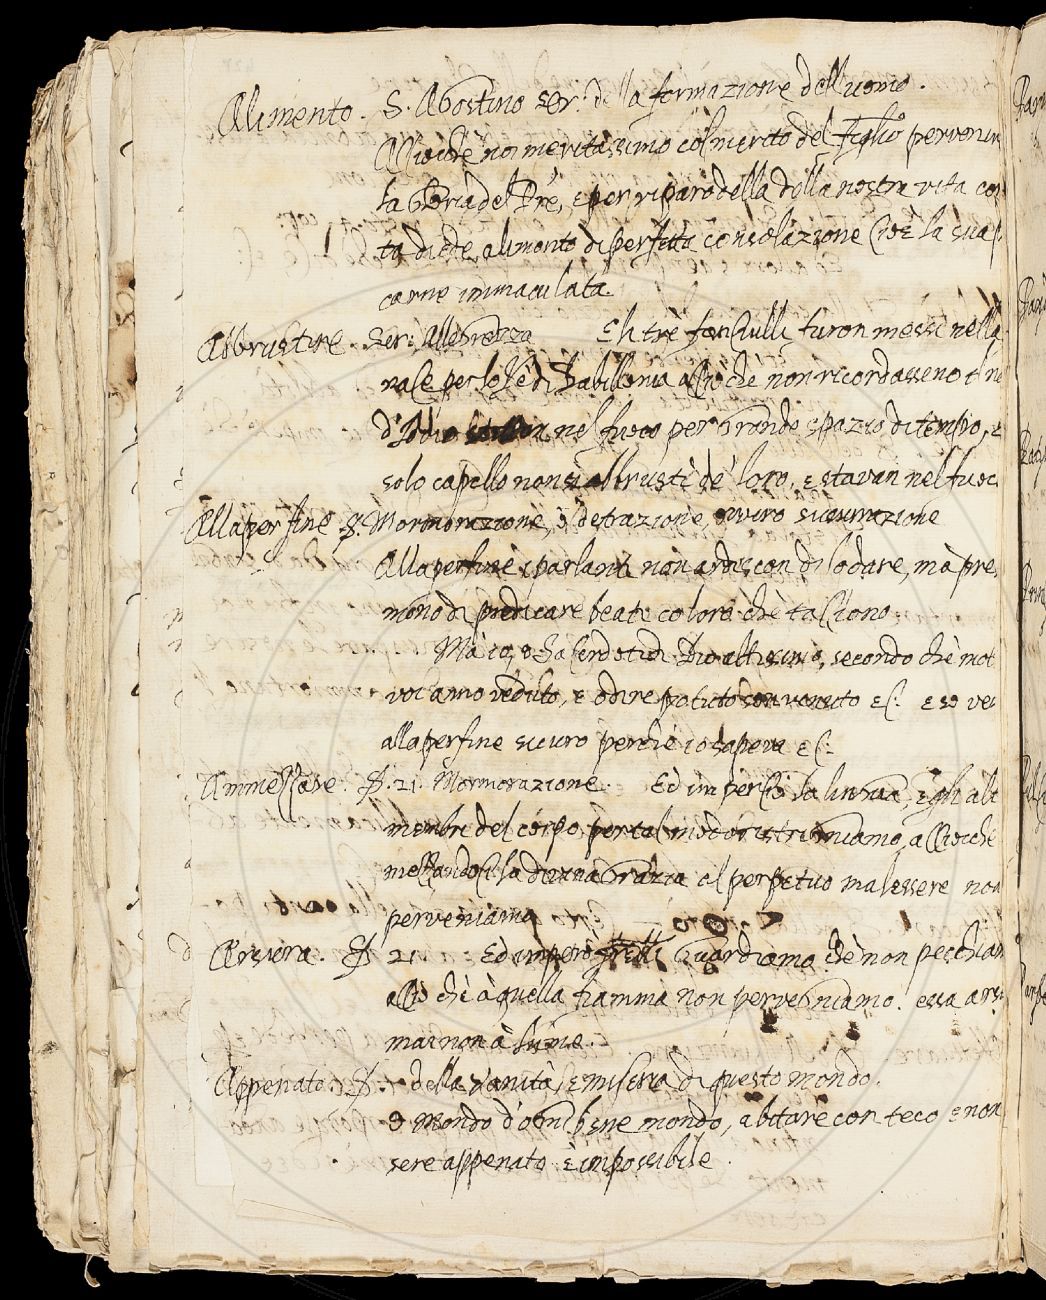 Alimento. S. Agostino Ser: della formazione dell'uomo.
Acciochè noi meritassimo col merito del Figlio perveni
la Gloria del Prē, e per riparo della della nostra vita co
ta diede alimento di perfetta consolazione cioè la sua
carne immaculata.
Abbrustire. Ser: Allegrezza E li trè fanciulli furon messi nella
nace per lo Rè di Babillonia acciò che non ricordasseno il
d'Iddio nel fuoco per grande spazio di tempo, e
solo capello non si abbrustì de' loro, e stavan nel fuoc
Allaperfine. S. Mormorazione, ò detrazione, ovvero susurrazione
Allaperfine i parlanti non ardiscon di lodare, mà pre
mono di predicare beati coloro chè tacciono
Mà io, o Sacerdoti di Dio altissimo, secondo chè mol
voi anno veduto, e odire potuto son vonuto ec: e so ve
allaperfine sicuro perchè io sapeva ec:
Ammezzare. S. 21. Mormorazione. Ed imperciò la lingua, e gli alt
membri del corpo per tal modo ristringniamo, acciocche
mezzandoci la divina Grazia al perpetuo malessere non
perveniamo
Arsiera. S. 21. Ed imperò Frelli guardiamo chè non pecchiam
acciò chè à quella fiamma non pervegniamo. essa ars
mai non à lume.
Appenato. S. della vanità, e miseria di questo mondo.
O Mondo d'ogni bene mondo, abitare con teco e non
sere appenato è impossibile.